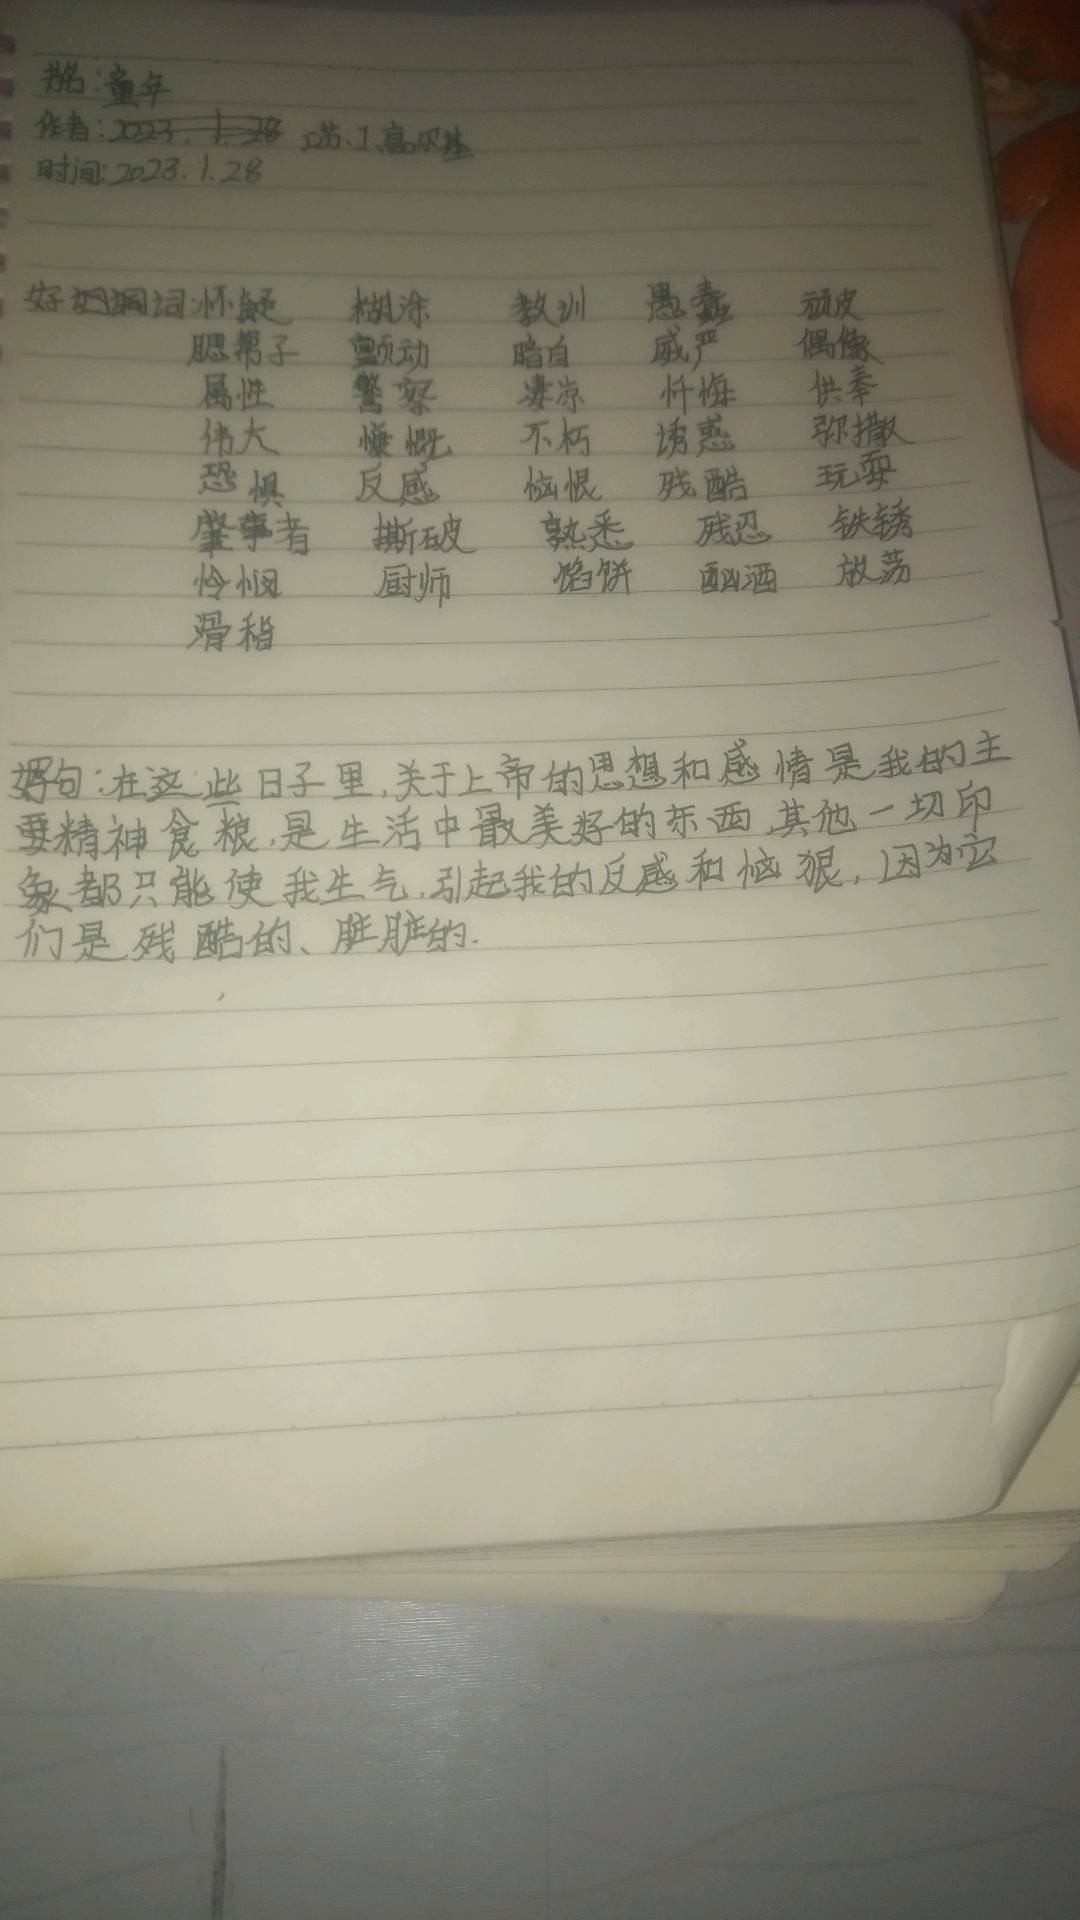 书名：童年
作者：2023.1.28 [苏]高尔基
时间：2023.1.28
好词词：怀疑 糊涂 教训 愚蠢 顽皮
腮帮子 颤动 暗自 威严 偶像
属性 警察 凄凉 忏悔 供奉
伟大 慷慨 不朽 诱惑 弥撒
恐惧 反感 恼恨 残酷 玩耍
肇事者 撕破 熟悉 残忍 铁锈
怜悯 厨师 馅饼 酗酒 放荡
滑稽
好句：在这些日子里，关于上帝的思想和感情是我的主
要精神食粮，是生活中最美好的东西，其他一切印
象都只能使我生气，引起我的反感和恼狠，因为它
们是残酷的、脏脏的.